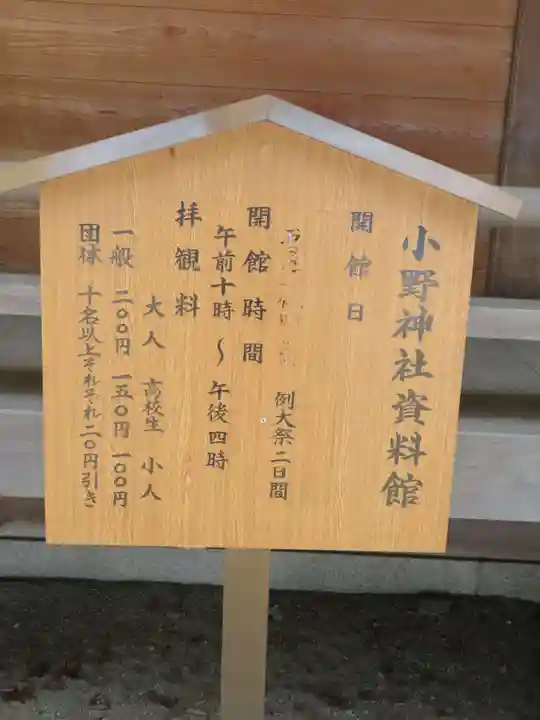 小野神社資料館
開館日
例大祭二日間
開館時間
午前十時〜午後四時
拝観料
大人 高校生 小人
一般 二〇〇円 一五〇円 一〇〇円
団体 十名以上それぞれ二〇円引き